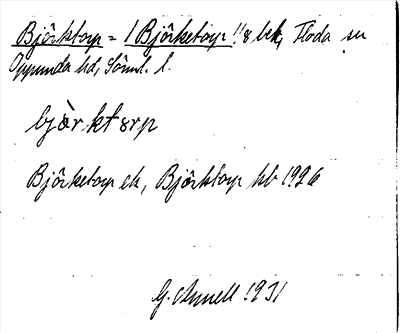 Björktorp = 1 Björketorp 1/8 hk, Floda sn
Oppunda hd, Söml. l.
bjòrktorp
Björketorp ek, Björktorp hb 1926
G. Annell 1931